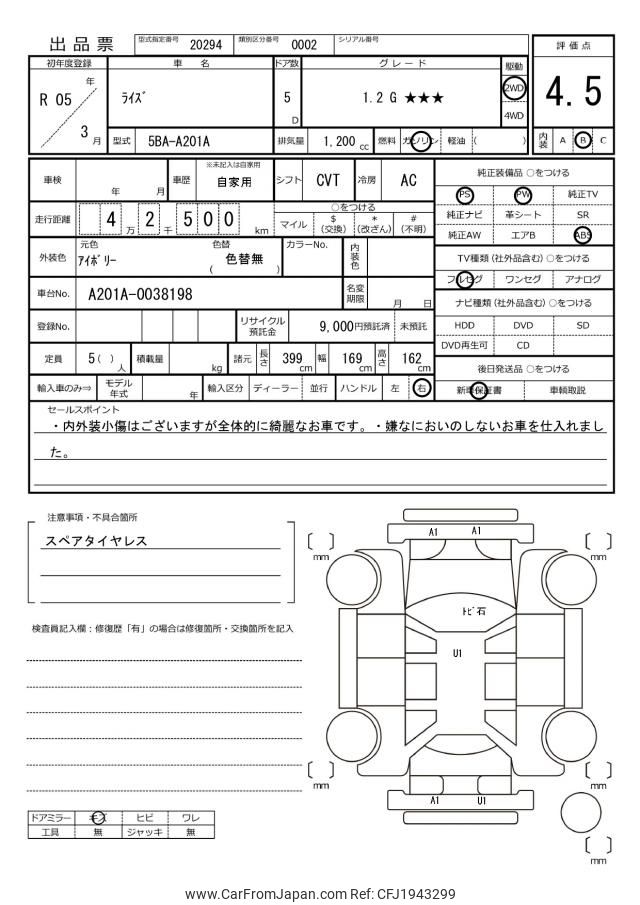 出品票 型式指定番号 20294 類別区分番号 0002 シリアル番号
評価点
4.5
内装 A B C
初年度登録 車 名 ドア数 グレード 駆動
R 05 年 3 月
ﾗｲｽﾞ
5 D
1.2 G ★★★
2WD
4WD
型式 5BA-A201A 排気量 1,200 cc 燃料 ガソリン 軽油 ( )
車検 年 月 車歴 ※未記入は自家用 自家用 シフト CVT 冷房 AC
走行距離 4 万 2 千 5 0 0 km
○をつける
マイル $(交換) *(改ざん) #(不明)
外装色 元色 ｱｲﾎﾞﾘｰ 色替 ( 色替無 ) カラーNo. 内装色
車台No. A201A-0038198 名変期限 月 日
登録No. リサイクル預託金 9,000円預託済 未預託
定員 5 ( ) 人 積載量 kg 諸元 長さ 399 cm 幅 169 cm 高さ 162 cm
輸入車のみ⇒ モデル年式 年 輸入区分 ディーラー 並行 ハンドル 左 右
純正装備品 ○をつける
PS PW 純正TV
純正ナビ 革シート SR
純正AW エアB ABS
TV種類 (社外品含む) ○をつける
フルセグ ワンセグ アナログ
ナビ種類 (社外品含む) ○をつける
HDD DVD SD
DVD再生可 CD
後日発送品 ○をつける
新車保証書 車輌取説
セールスポイント
・内外装小傷はございますが全体的に綺麗なお車です。・嫌なにおいのしないお車を仕入れまし
た。
注意事項・不具合箇所
スペアタイヤレス
検査員記入欄：修復歴「有」の場合は修復箇所・交換箇所を記入
ドアミラー キズ ヒビ ワレ
工具 無 ジャッキ 無
A1 A1
mm mm
ﾄﾋﾞ石
U1
mm mm
A1 U1
mm
www.CarFromJapan.com Ref: CFJ1943299